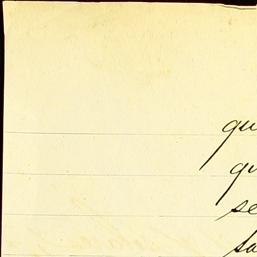 qu
qu
se
sa